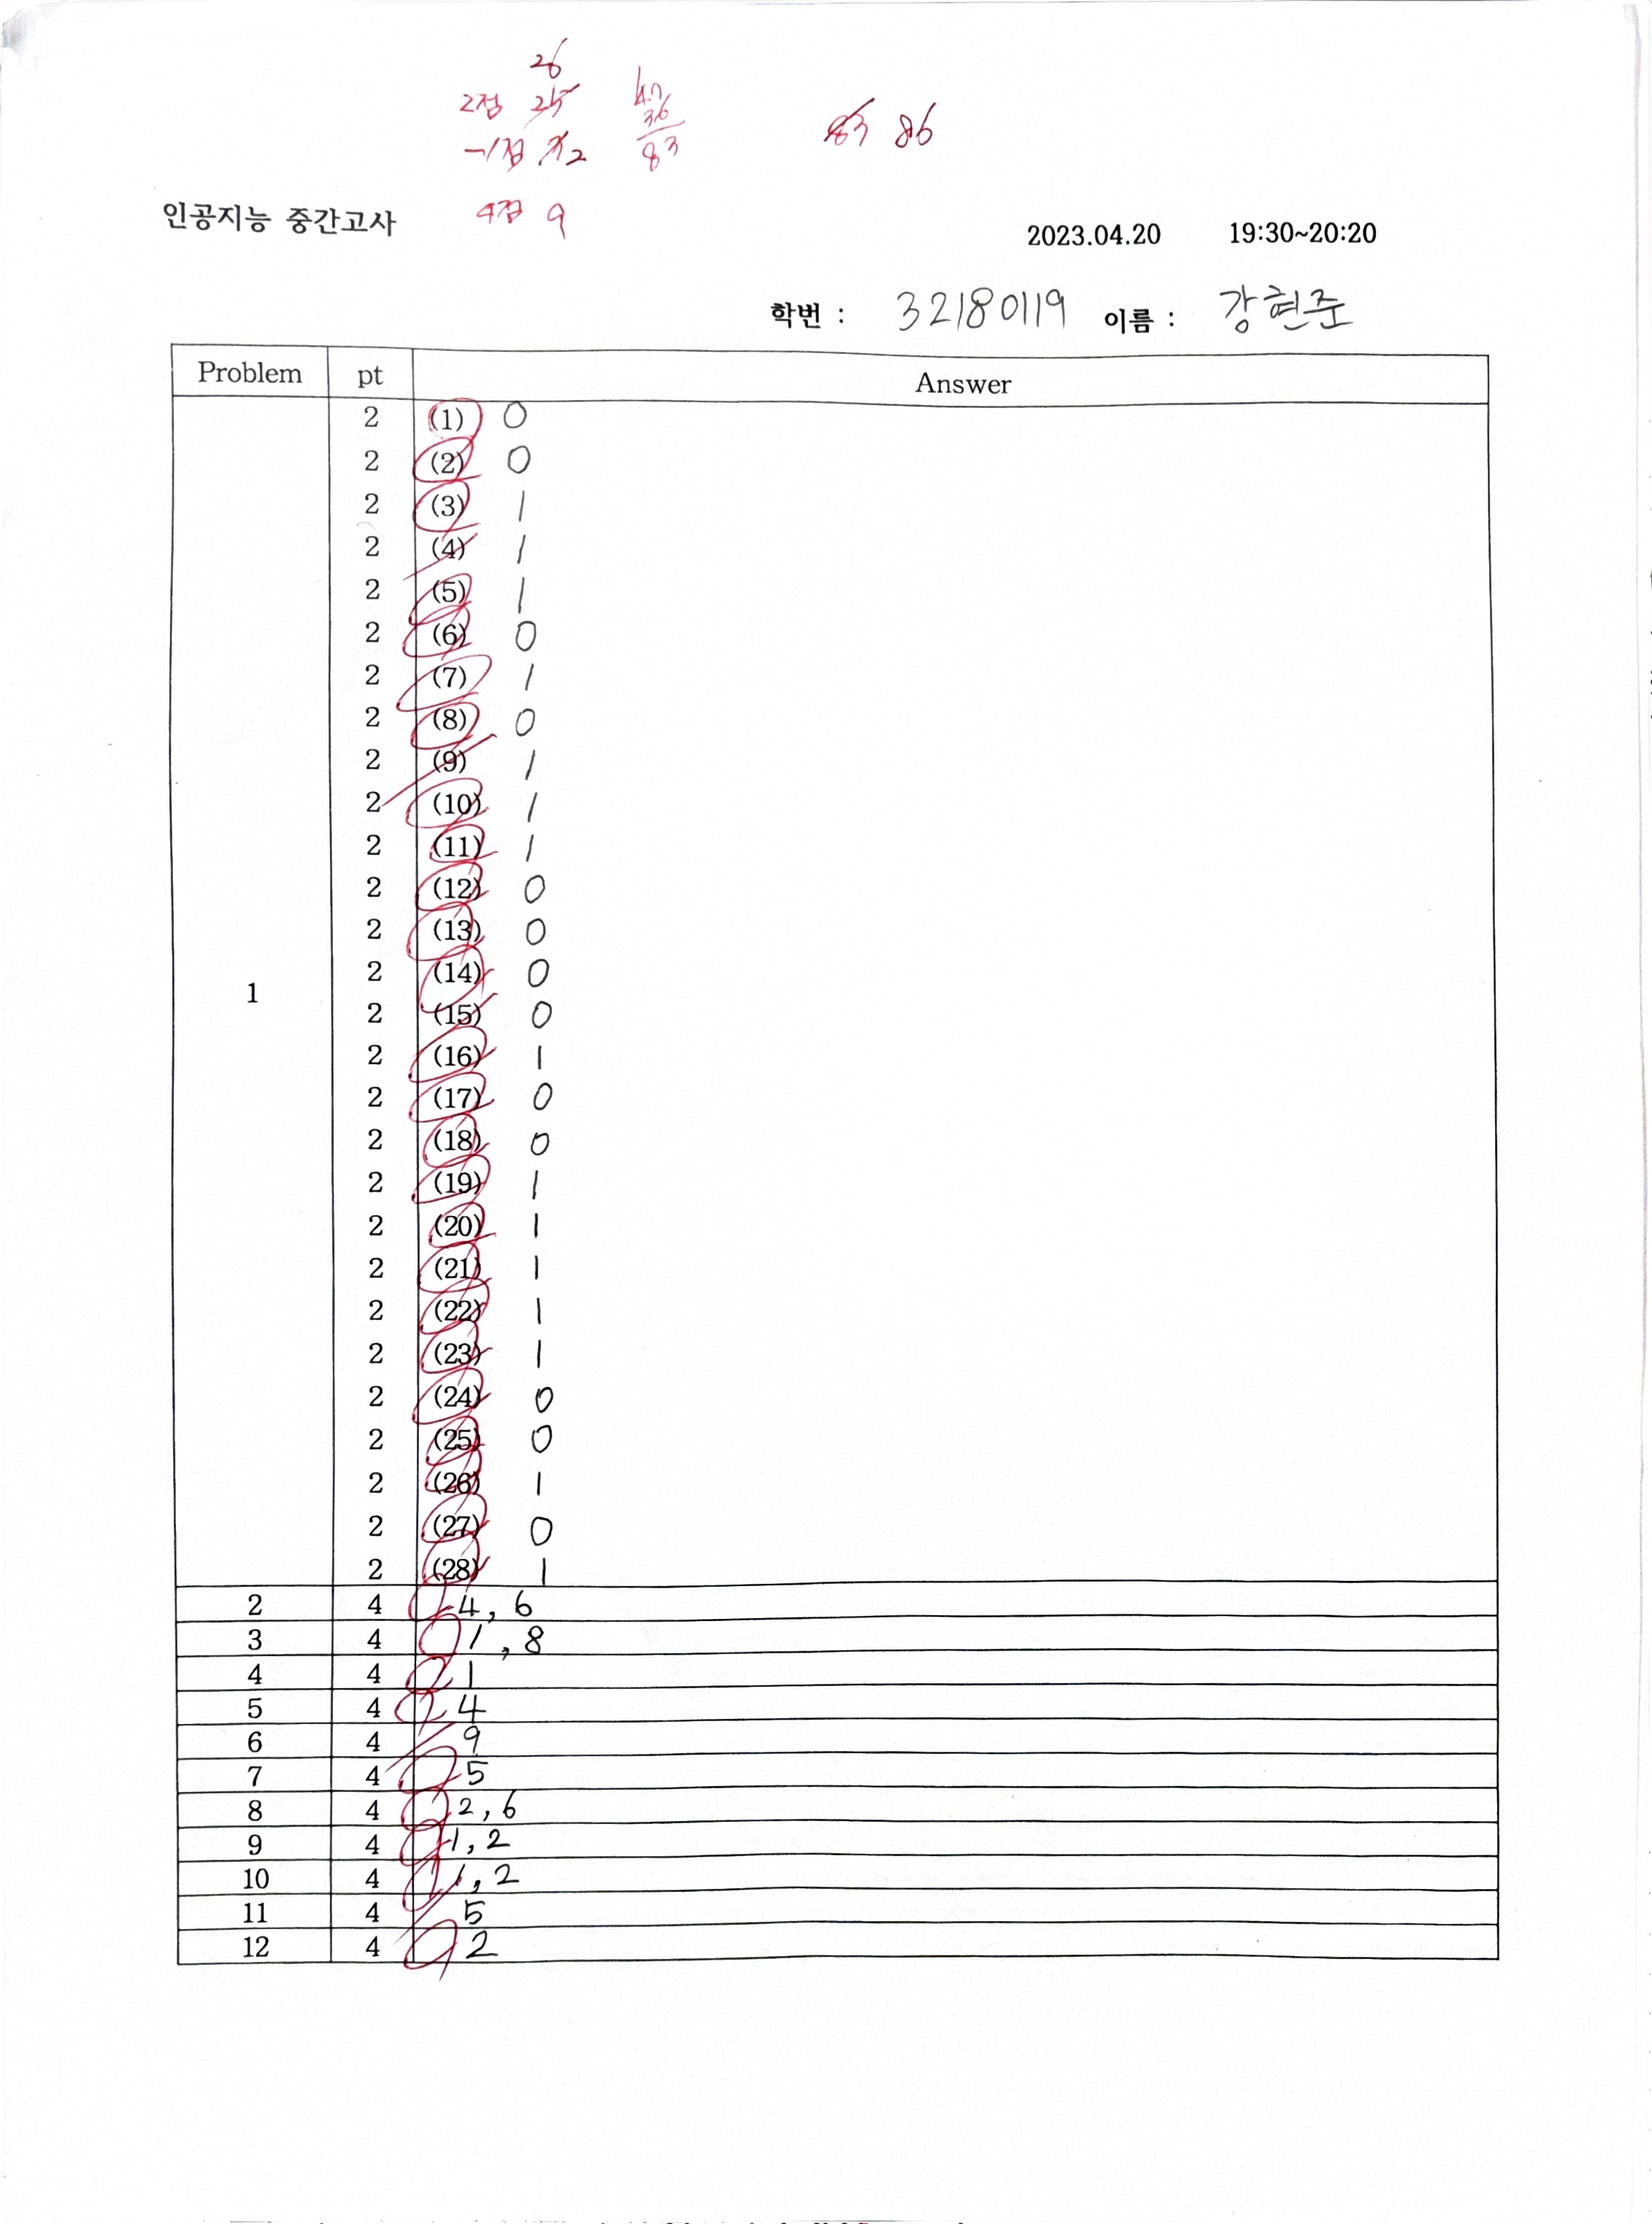 26
2점 25 47
36
-1점 3 2 83 83 86
인공지능 중간고사 4점 9
2023.04.20 19:30~20:20
학번 : 32180119 이름 : 강현준
Problem pt Answer
2 (1) 0
2 (2) 0
2 (3) 1
2 (4) 1
2 (5) 1
2 (6) 0
2 (7) 1
2 (8) 0
2 (9) 1
2 (10) 1
2 (11) 1
2 (12) 0
2 (13) 0
2 (14) 0
1
2 (15) 0
2 (16) 1
2 (17) 0
2 (18) 0
2 (19) 1
2 (20) 1
2 (21) 1
2 (22) 1
2 (23) 1
2 (24) 0
2 (25) 0
2 (26) 1
2 (27) 0
2 (28) 1
2 4 4, 6
3 4 1, 8
4 4 1
5 4 4
6 4 9
7 4 5
8 4 2, 6
9 4 1, 2
10 4 1, 2
11 4 5
12 4 2